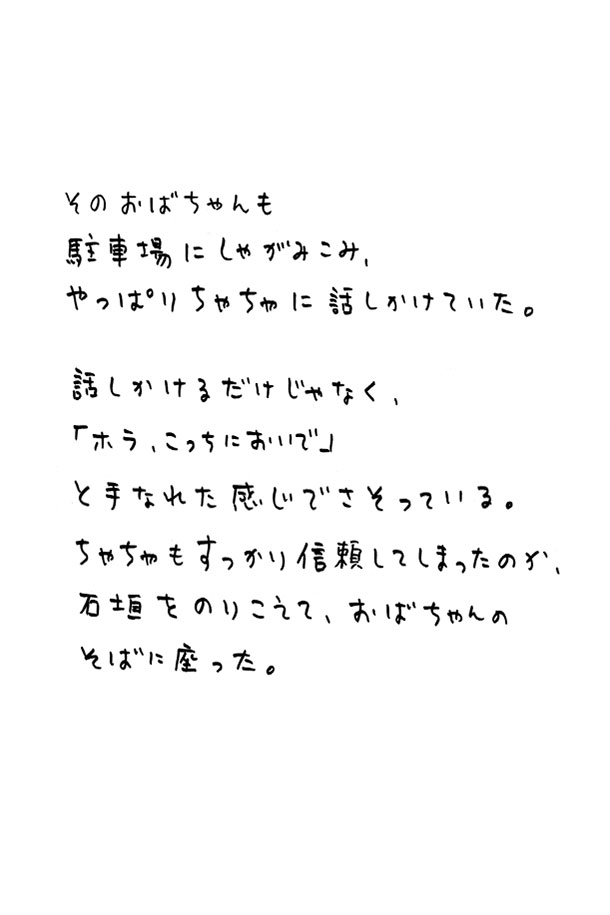 そのおばちゃんも
駐車場にしゃがみこみ、
やっぱりちゃちゃに話しかけていた。
話しかけるだけじゃなく、
「ホラ、こっちにおいで」
と手なれた感じでさそっている。
ちゃちゃもすっかり信頼してしまったのか、
石垣をのりこえて、おばちゃんの
そばに座った。